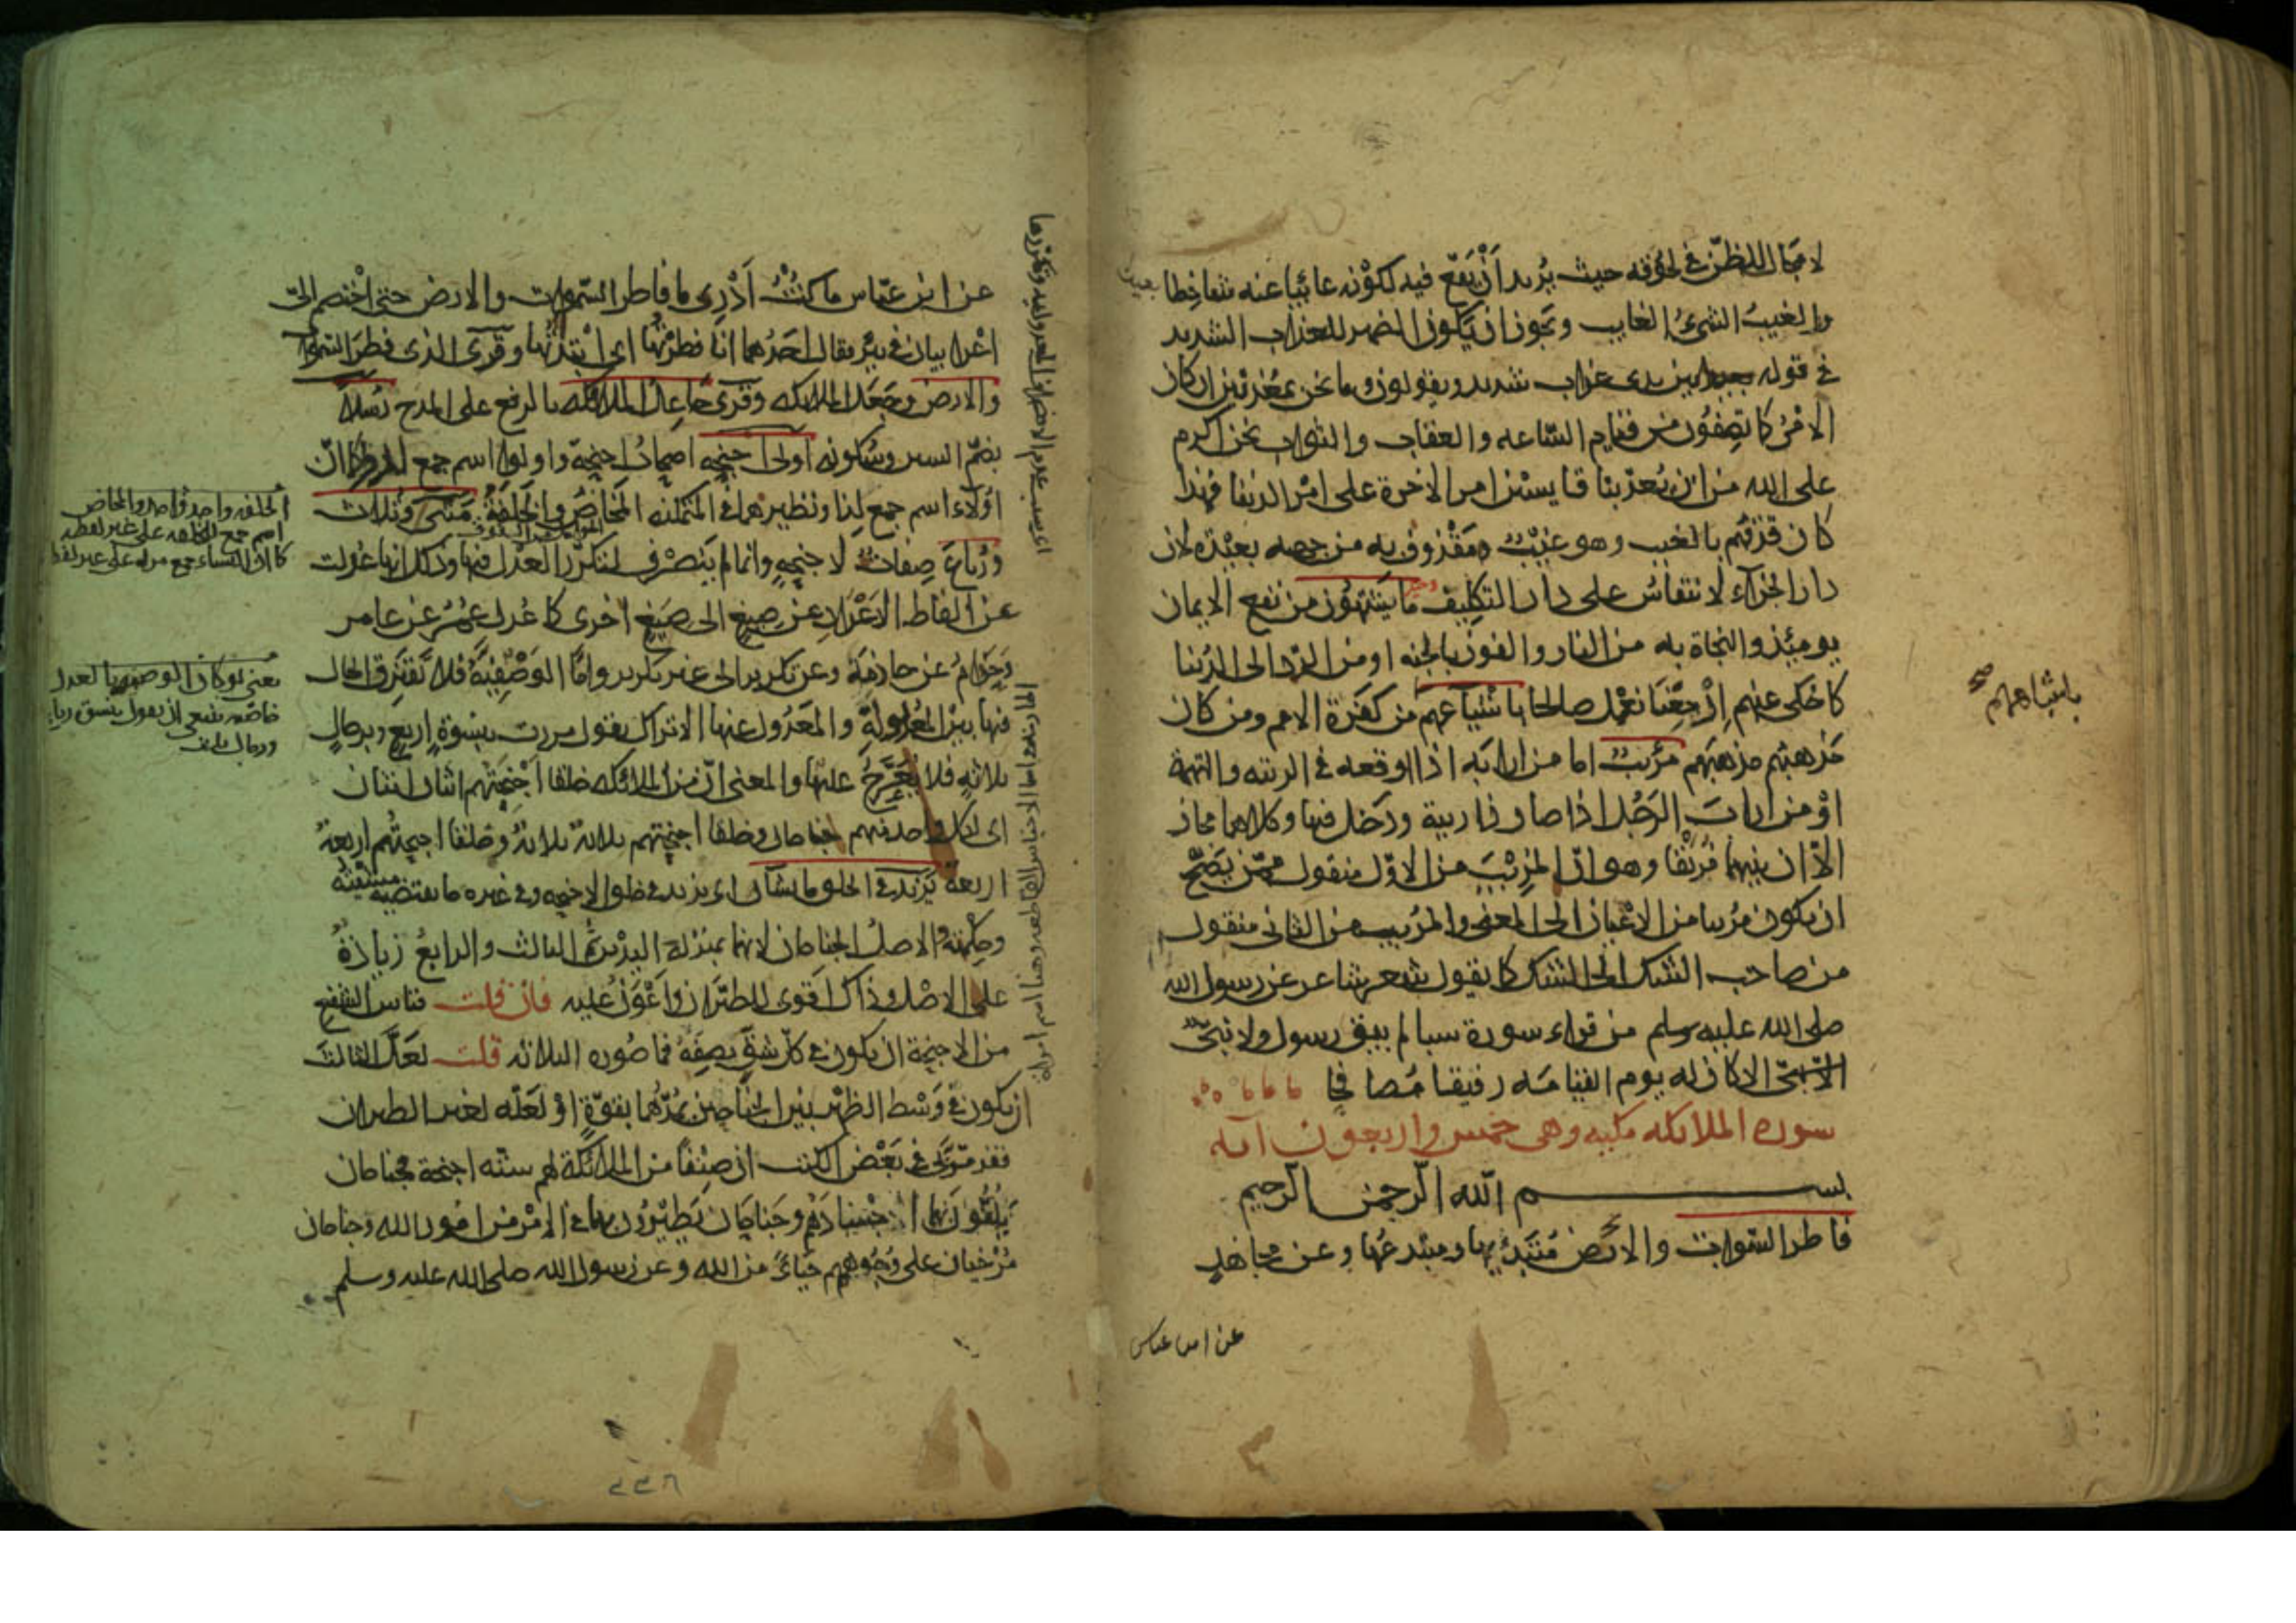 لا مجال للظن في لحوقه حيث يريد أن يقع فيه لكونه غائبا عنه شاحطا بعيدا
والغيب الشيء الغايب ويجوز ان يكون الضمير للعذاب الشديد
في قوله بين يدى عذاب شديد ويقولون وما نحن بمعذبين ان كان
الامر كما تصفون من قيام الساعه والعقاب والثواب ونحن اكرم
على الله من ان يعذبنا قايسين امر الاخرة على امر الدنيا فهذا
كان قذفهم بالغيب وهو غيب ومقذوف به من جهه بعيدة لان
دار الجزآء لا تنقاس على دار التكليف ما يشتهون من نفع الايمان
يومئذ والنجاة به من النار والفوز بالجنه او من الرد الى الدنيا
كما حكى عنهم ارجعنا نعمل صالحا باشياعهم من كفرة الامم ومن كان
مذهبهم مذهبهم مريب اما من ارابه اذا اوقعه في الريبه والتهمة
او من اراب الرجل اذا صار ذا ريبة ودخل فيها وكلاهما مجاز
الا ان بينهما فريقا وهو ان المريب من الاول منقول ممن يصح
ان يكون مريبا من الاعيان الى المعنى والمريب من الثانى منقول
من صاحب الشك الى الشك كما يقول شعر شاعر عن رسول الله
صلى الله عليه وسلم من قراء سورة سبا لم يبق رسول ولا نبي
الا كان له يوم القيامه رفيقا مصافحا
سوره الملائكه مكيه وهى خمس واربعون آيه
بسم الله الرحمن الرحيم
فاطر السموات والارض مبتديها ومبتدعها وعن مجاهد
باشياعهم صح
عن ابن عباس
عن ابن عباس ما كنت أدرى ما فاطر السموات والارض حتى اختصم الى
اعرابيان في بئر فقال احدهما انا فطرتها اى ابتدأتها وقرى الذى فطر السموات
والارض وجعل الملائكه وقرى جاعل الملائكه بالرفع على المدح رسلا
بضم السين وسكونه اولى اجنحه اصحاب اجنحة واولوا اسم جمع لذو كما ان
اولاء اسم جمع لذا ونظيرهما في المتمكنه المخاض والخلفة مثنى وثلاث
ورباع صفات لاجنحه وانما لم ينصرف لتكرر العدل فيها وذلك انها عدلت
عن الفاظ الاعداد عن صيغ الى صيغ اخرى كما عدل عمر عن عامر
وحذام عن حاذمة وعن تكرير الى غير تكرير واما الوصفية فلا تفترق الحال
فيها بين المعدولة والمعدول عنها الا تراك تقول مررت بنسوة اربع وبرجال
ثلاثه فلا يعرج عليها والمعنى ان من الملائكه خلقا اجنحتهم اثنان اثنان
اى لكل واحد منهم جناحان وخلقا اجنحتهم ثلاثة ثلاثة وخلقا اجنحتهم اربعة
اربعة يزيد في الخلق ما يشآء اى يزيد في خلق الاجنحه وفى غيره ما تقتضيه مشيئته
وحكمته والاصل الجناحان لانهما بمنزلة اليدين ثم الثالث والرابع زيادة
على الاصل وذاك اقوى للطيران واعون عليه فان قلت قياس الشفع
من الاجنحة ان يكون في كل شق نصفه فما صوره الثلاثه قلت لعل الثالث
ان يكون في وسط الظهر بين الجناحين يمدهما بقوة او لعله لغير الطيران
فقد مر بى في بعض الكتب ان صنفا من الملائكة لهم سته اجنحة فجناحان
يلفون بهما اجسادهم وجناحان يطيرون بهما في الامر من امور الله وجناحان
مرخيان على وجوههم حياء من الله وعن رسول الله صلى الله عليه وسلم
اسم جمع للخلفه على غير لفظه
كما ان النساء جمع مراه على غير لفظها
٢٢٦